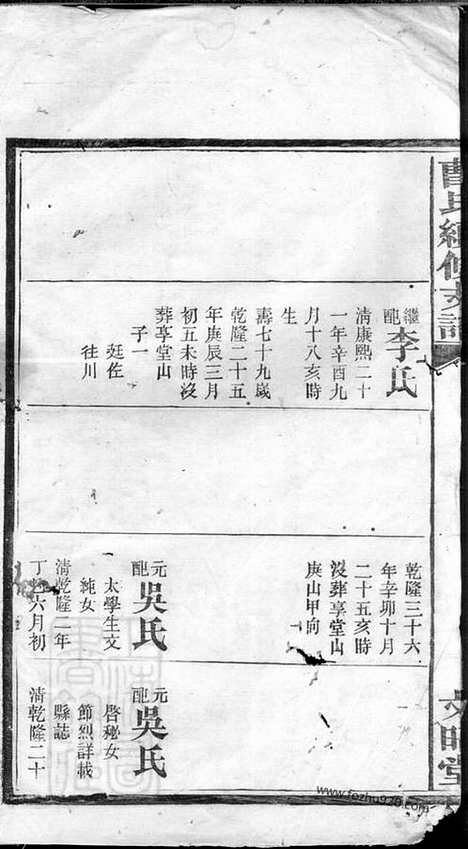 曹氏續修支譜
繼配李氏
清康熙二十
一年辛酉九
月十八亥時
生
壽七十九歲
乾隆二十五
年庚辰三月
初五未時沒
葬享堂山
子一
廷佐
往川
乾隆三十六
年辛卯十月
二十五亥時
沒葬享堂山
庚山甲向
元配吳氏
太學生文
純女
清乾隆二年
丁巳六月初
元配吳氏
啓秘女
節烈詳載
縣誌
清乾隆二十
堂
www.fozhu920.com